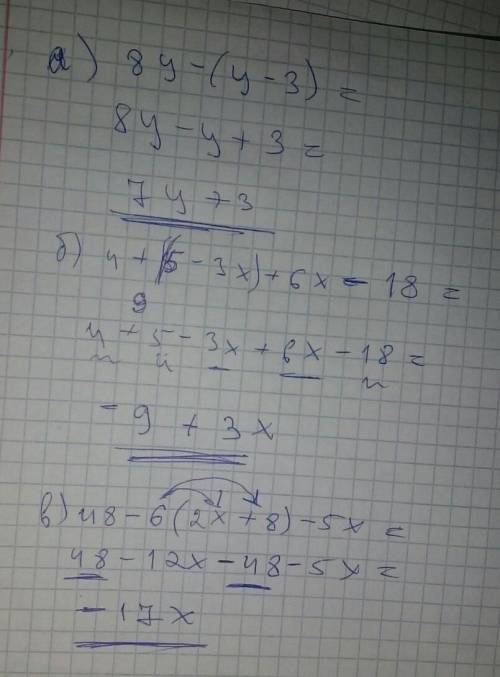 а) 8y-(y-3)=
8y-y+3=
7y+3
б) 4+(5-3x)+6x-18=
9
4+5-3x+6x-18=
-9+3x
в) 48-6(2x+8)-5x=
48-12x-48-5x=
-17x